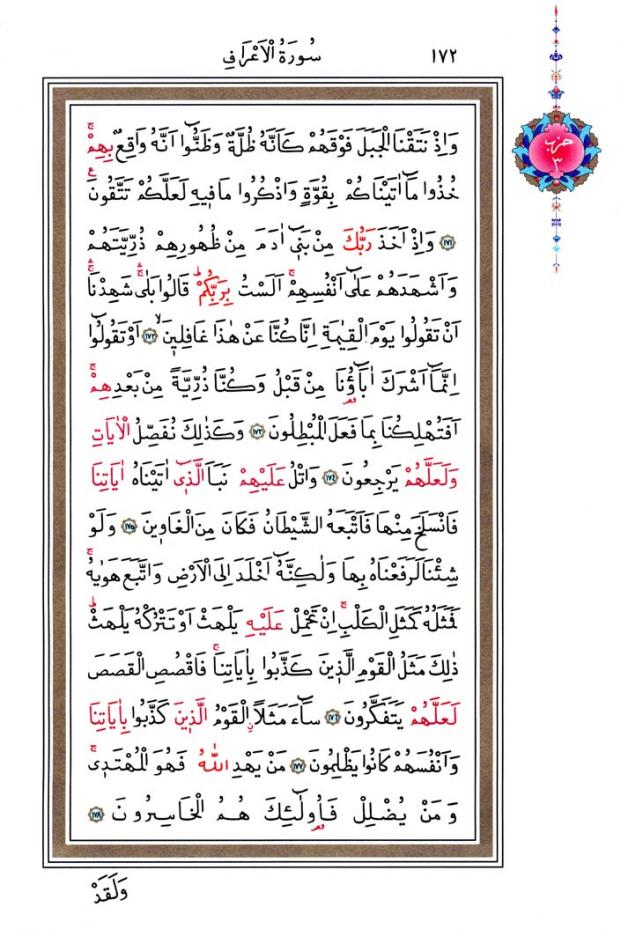 ١٧٢ سُورَةُ الْاَعْرَافِ
حزب
٣
وَاِذْ نَتَقْنَا الْجَبَلَ فَوْقَهُمْ كَاَنَّهُ ظُلَّةٌ وَظَنُّٓوا اَنَّهُ وَاقِعٌ بِهِمْۚ
خُذُوا مَٓا اٰتَيْنَاكُمْ بِقُوَّةٍ وَاذْكُرُوا مَا فٖيهِ لَعَلَّكُمْ تَتَّقُونَࣖ
﴿١٧١﴾ وَاِذْ اَخَذَ رَبُّكَ مِنْ بَنٖٓي اٰدَمَ مِنْ ظُهُورِهِمْ ذُرِّيَّتَهُمْ
وَاَشْهَدَهُمْ عَلٰٓى اَنْفُسِهِمْۚ اَلَسْتُ بِرَبِّكُمْؕ قَالُوا بَلٰىۚۛ شَهِدْنَاۚۛ
اَنْ تَقُولُوا يَوْمَ الْقِيٰمَةِ اِنَّا كُنَّا عَنْ هٰذَا غَافِلٖينَۙ ﴿١٧٢﴾ اَوْ تَقُولُٓوا
اِنَّمَٓا اَشْرَكَ اٰبَٓاؤُ۬نَا مِنْ قَبْلُ وَكُنَّا ذُرِّيَّةً مِنْ بَعْدِهِمْۚ
اَفَتُهْلِكُنَا بِمَا فَعَلَ الْمُبْطِلُونَ ﴿١٧٣﴾ وَكَذٰلِكَ نُفَصِّلُ الْاٰيَاتِ
وَلَعَلَّهُمْ يَرْجِعُونَ ﴿١٧٤﴾ وَاتْلُ عَلَيْهِمْ نَبَاَ الَّذٖٓي اٰتَيْنَاهُ اٰيَاتِنَا
فَانْسَلَخَ مِنْهَا فَاَتْبَعَهُ الشَّيْطَانُ فَكَانَ مِنَ الْغَاوٖينَ ﴿١٧٥﴾ وَلَوْ
شِئْنَا لَرَفَعْنَاهُ بِهَا وَلٰكِنَّهُٓ اَخْلَدَ اِلَى الْاَرْضِ وَاتَّبَعَ هَوٰيهُۚ
فَمَثَلُهُ كَمَثَلِ الْكَلْبِۚ اِنْ تَحْمِلْ عَلَيْهِ يَلْهَثْ اَوْ تَتْرُكْهُ يَلْهَثْؕ
ذٰلِكَ مَثَلُ الْقَوْمِ الَّذٖينَ كَذَّبُوا بِاٰيَاتِنَاۚ فَاقْصُصِ الْقَصَصَ
لَعَلَّهُمْ يَتَفَكَّرُونَ ﴿١٧٦﴾ سَٓاءَ مَثَلاًۨ الْقَوْمُ الَّذٖينَ كَذَّبُوا بِاٰيَاتِنَا
وَاَنْفُسَهُمْ كَانُوا يَظْلِمُونَ ﴿١٧٧﴾ مَنْ يَهْدِ اللّٰهُ فَهُوَ الْمُهْتَدٖيۚ
وَمَنْ يُضْلِلْ فَاُو۬لٰٓئِكَ هُمُ الْخَاسِرُونَ ﴿١٧٨﴾
وَلَقَدْ